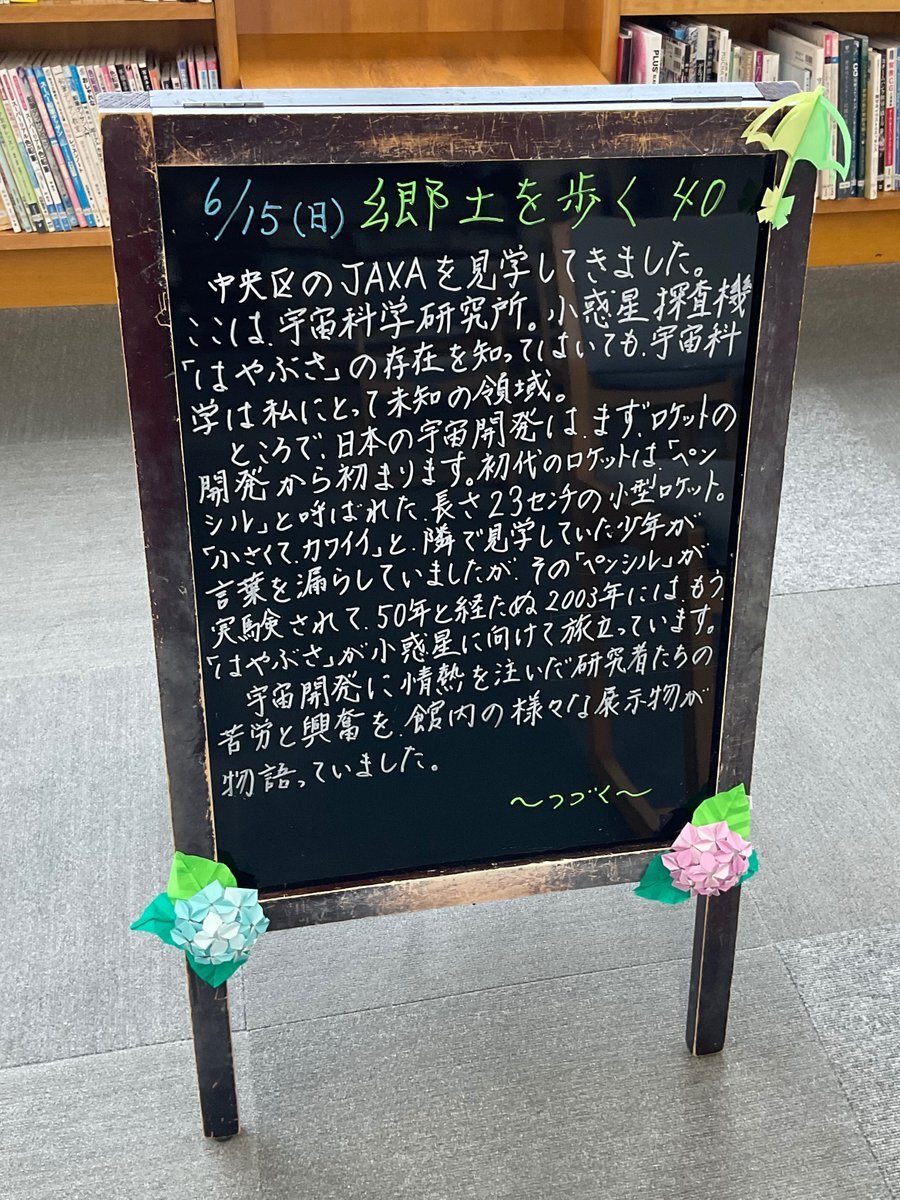 6/15(日) 郷土を歩く 40
中央区のJAXAを見学してきました。
ここは、宇宙科学研究所。小惑星探査機
「はやぶさ」の存在を知ってはいても、宇宙科
学は私にとって未知の領域。
ところで、日本の宇宙開発は、まず、ロケットの
開発から初まります。初代のロケットは、「ペン
シル」と呼ばれた、長さ23センチの小型ロケット。
「小さくて、カワイイ」と、隣で見学していた少年が
言葉を漏らしていましたが、その「ペンシル」が
実験されて、50年と経たぬ2003年には、もう、
「はやぶさ」が小惑星に向けて旅立っています。
宇宙開発に情熱を注いだ研究者たちの
苦労と興奮を、館内の様々な展示物が
物語っていました。
〜つづく〜